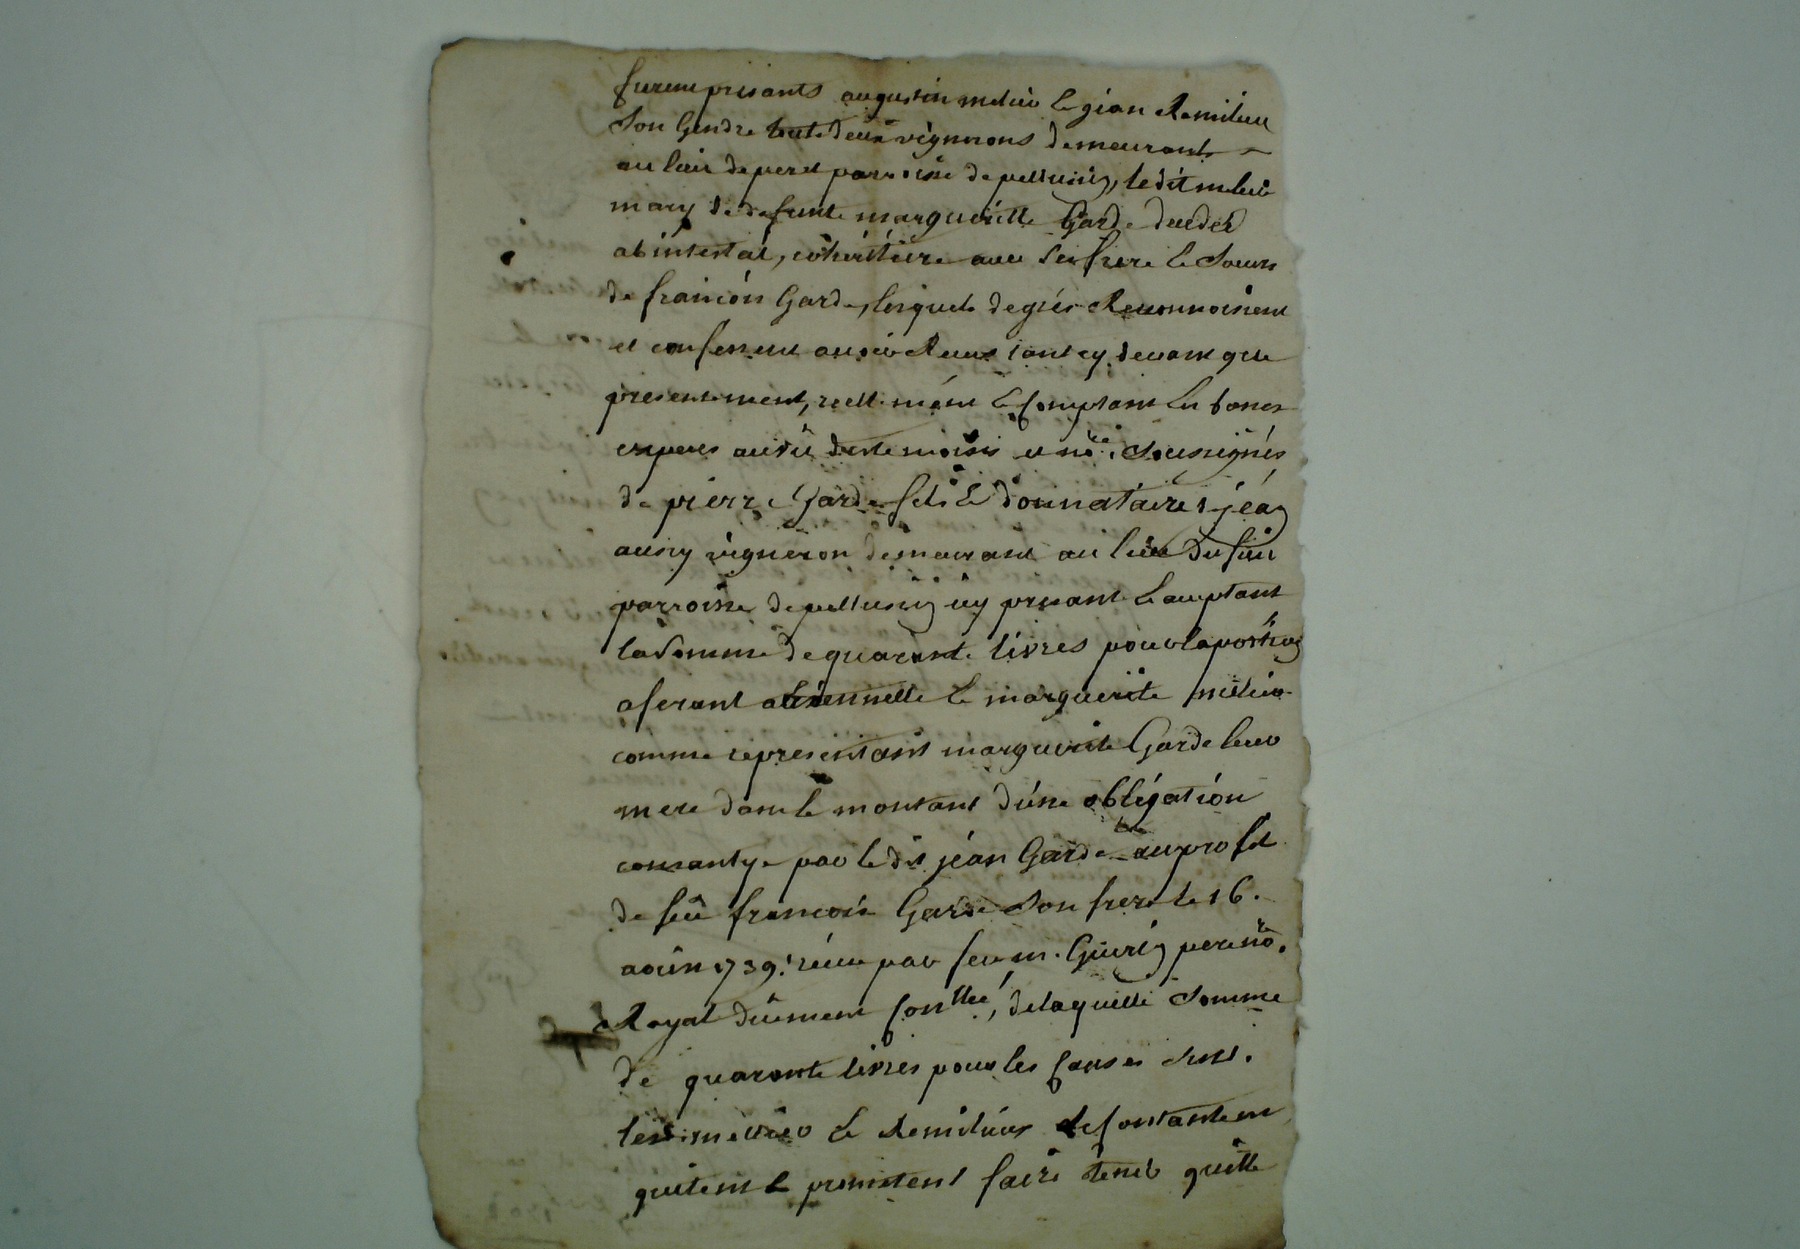 furent presants augustin melier & jean Remilieu
Son Gendre toute deux vignerons demeurants
au lieu de peret parroisse de pellusin, ledit melier
mary de defunte marguerite Garde decdée
abintestat, cohéritiere avec ses frere & soeurs
de francois Garde, lesquels de grés Reconnoissent
et confessent avoir Receu tant cy devant que
presentement, reellement & comptant en bones
especes au vû des temoins et nore. soussignés
de pierre Garde fils & donnataire, jean
aussy vigneron demeurant au lieu du
parroisse de pellusin icy presant & acceptant
la somme de quarante livres pour la portion
aferant a etiennette & marguerite melier
comme representant marguerite Garde leur
mere dans le montant d'une obligation
consantye par le dit jean Garde au profit
de feu francois Garde son frere le 16.
aoust 1739. receu par feu m. Guerin pere no.re
Royal dûement Conllée, de laquelle somme
de quarante livres pour les causes susd.
lesd. melier & Remilieux se contantent
quitent & promettent faire tenir quitte